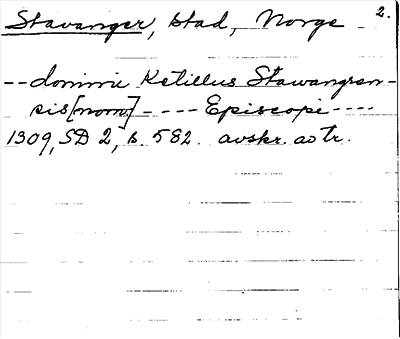 Stavanger, stad, Norge 2.
-- dominie Ketillus Stawangren-
sis [nom] ---- Episcopi ----
1309, SD 2, s. 582. avskr. ao tr.